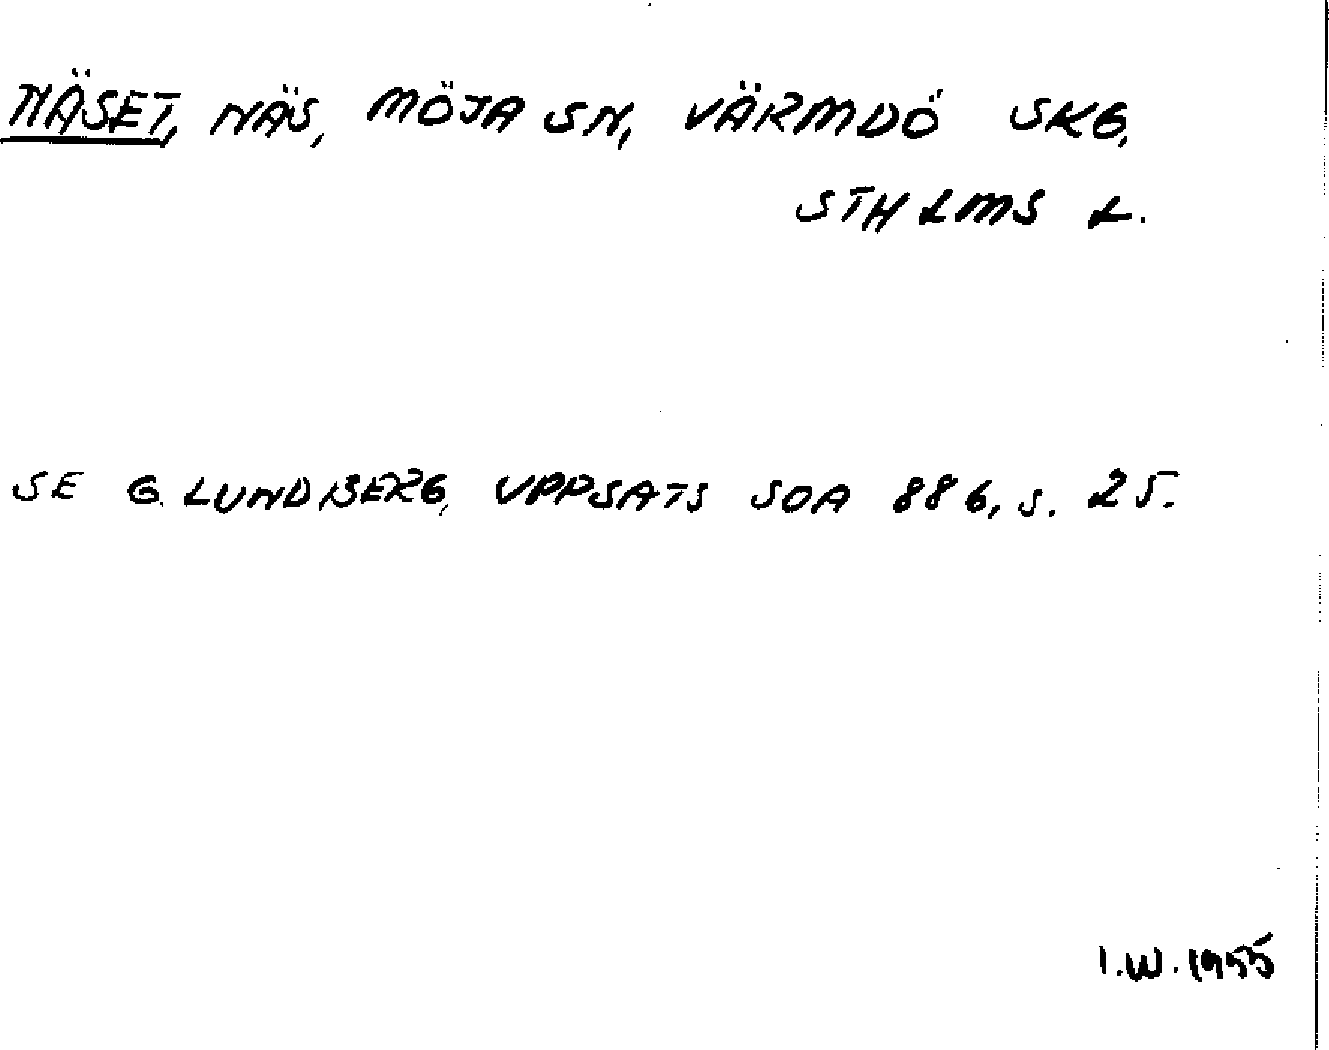 NÄSET, NÄS, MÖJA SN, VÄRMDÖ SKG,
STHLMS L.
SE G. LUNDBERG, UPPSATS SOA 886, S. 25.
I.W. 1955